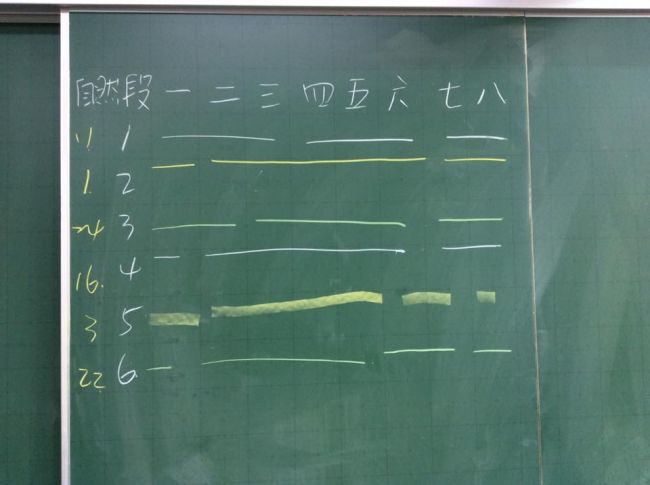 自然段 一 二 三 四 五 六 七 八
11 1
1. 2
24 3
16. 4
3 5
22 6